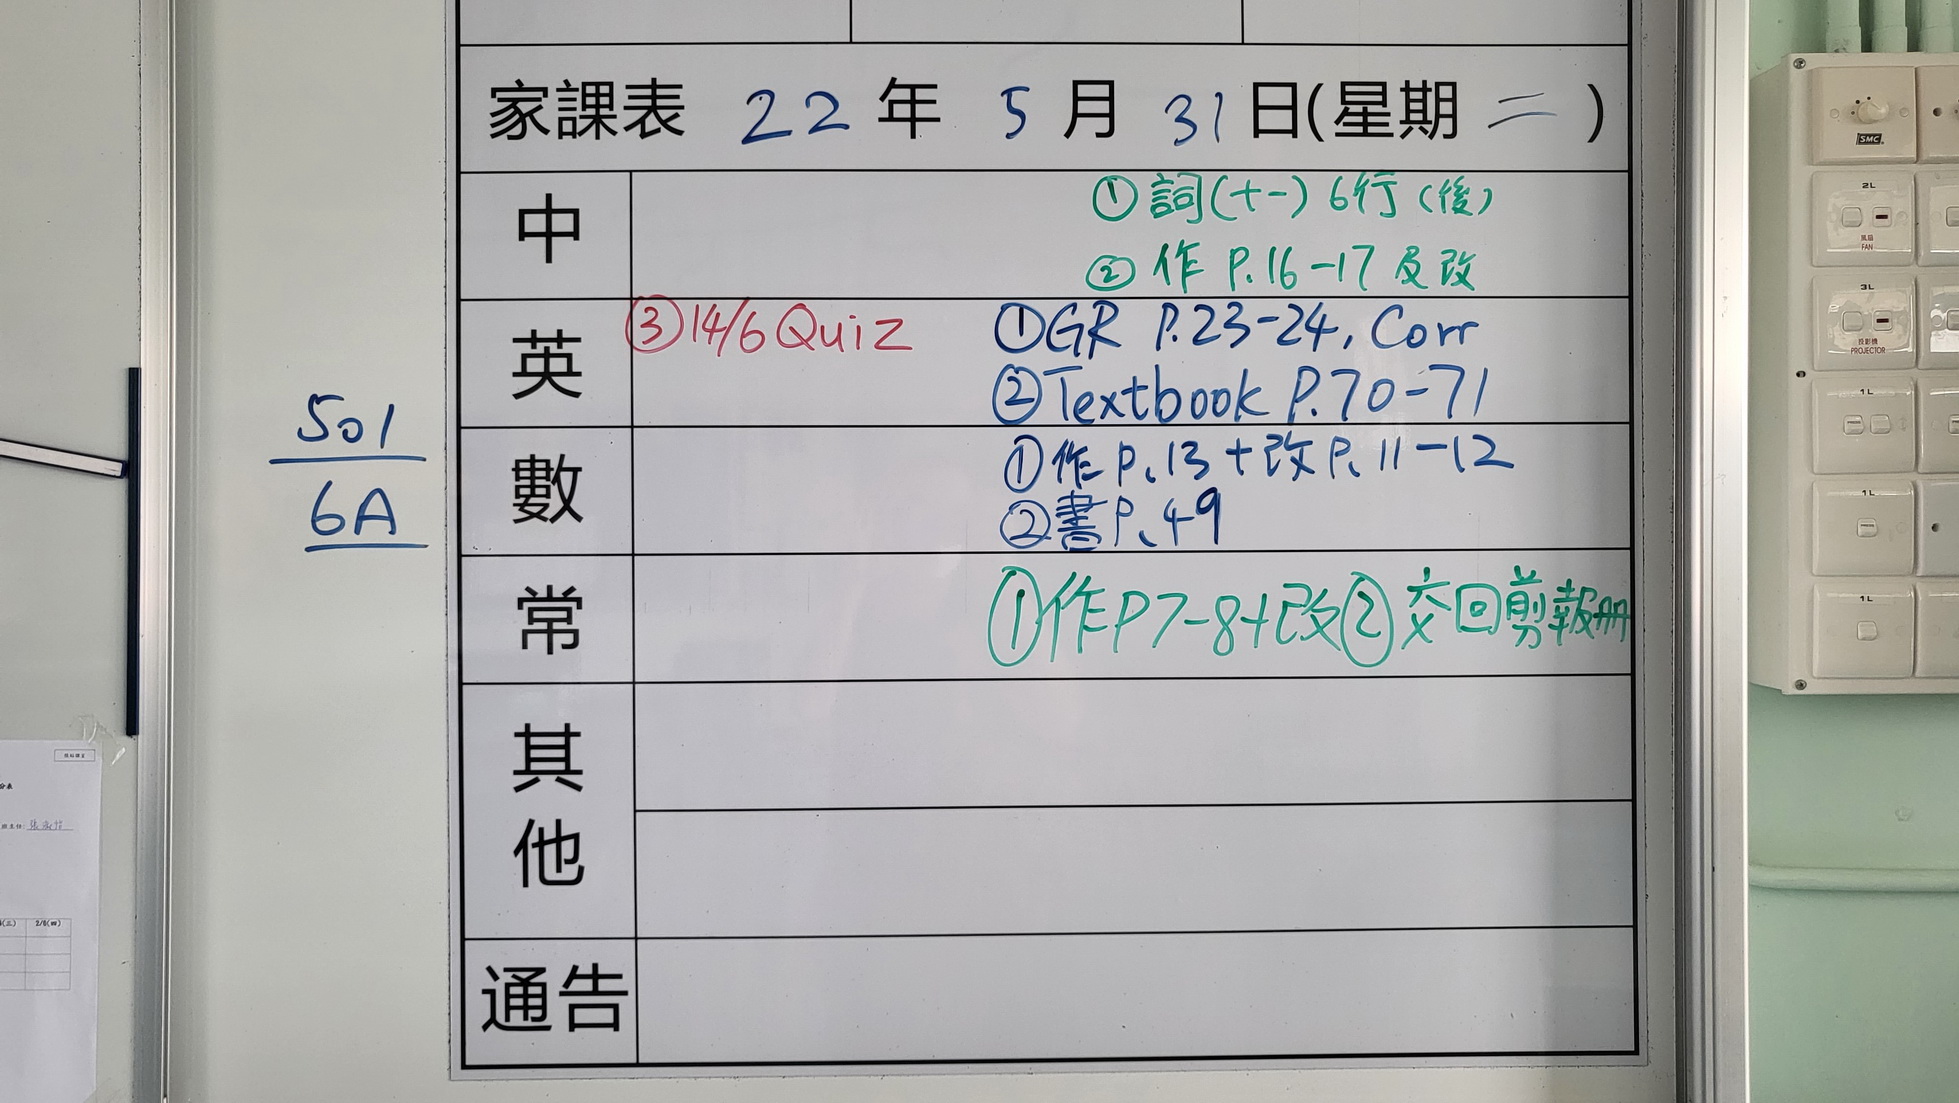 家課表 22 年 5 月 31 日(星期 二 )
中
① 詞(十一) 6行 (後)
② 作 P.16-17 及改
英
③ 14/6 Quiz
① GR P.23-24, Corr
② Textbook P.70-71
數
① 作 P.13 + 改 P.11-12
② 書 P.49
常
① 作P7-8+改 ② 交回剪報冊
其他
通告
501
6A
SMC
2L
風扇
FAN
3L
投影機
PROJECTOR
1L
1L
1L
2/6(四)